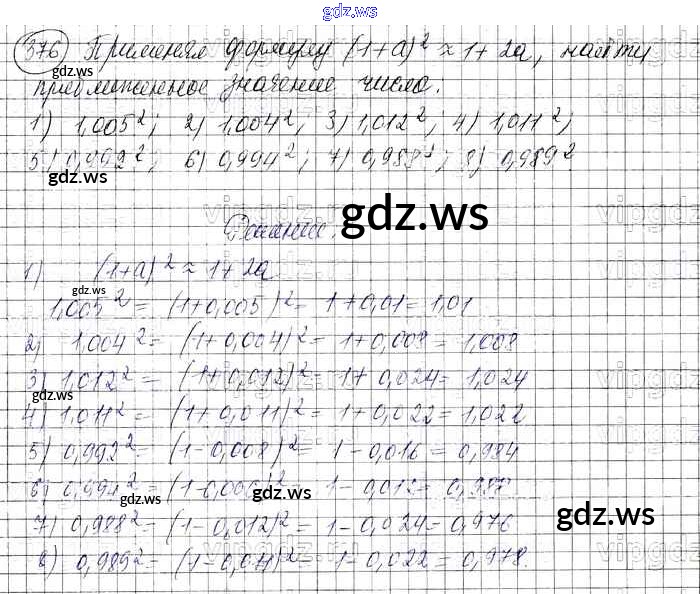 gdz.ws
376 Применяя формулу (1+a)² ≈ 1+2a, найти
приближенное значение числа:
1) 1,005²; 2) 1,004²; 3) 1,012²; 4) 1,011²;
5) 0,992²; 6) 0,994²; 7) 0,988²; 8) 0,989²
gdz.ws
gdz.ws
Решение.
gdz.ws
1) (1+a)² ≈ 1+2a
1,005² = (1+0,005)² = 1+0,01 = 1,01
gdz.ws
2) 1,004² = (1+0,004)² = 1+0,008 = 1,008
3) 1,012² = (1+0,012)² = 1+0,024 = 1,024
gdz.ws
4) 1,011² = (1+0,011)² = 1+0,022 = 1,022
5) 0,992² = (1-0,008)² = 1-0,016 = 0,984
6) 0,994² = (1-0,006)² = 1-0,012 =
gdz.ws gdz.ws gdz.ws
7) 0,988² = (1-0,012)² = 1-0,024 = 0,976
8) 0,989² = (1-0,011)² = 1-0,022 = 0,978.